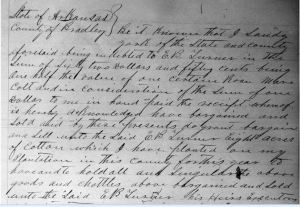 State of Arkansas }
County of Bradley } Be it Known that I Sandy
of the State and county
aforesaid being indebted to E.P. Turner in the
Sum of fifty two dollars and fifty cents being
one half the value of one certain Roan
Colt and in Consideration of the Sum of one
dollar to me in hand paid the receipt whereof
is hereby acknowledged have bargained and
sold and by these presents do grant bargain
and Sell unto the Said E.P. Turner Eight acres
of Cotton which I have planted on my
plantation in this County for this year to
have and to hold all and Singular the above
goods and chattles above bargained and sold
unto the Said E.P. Turner his Heirs Executors